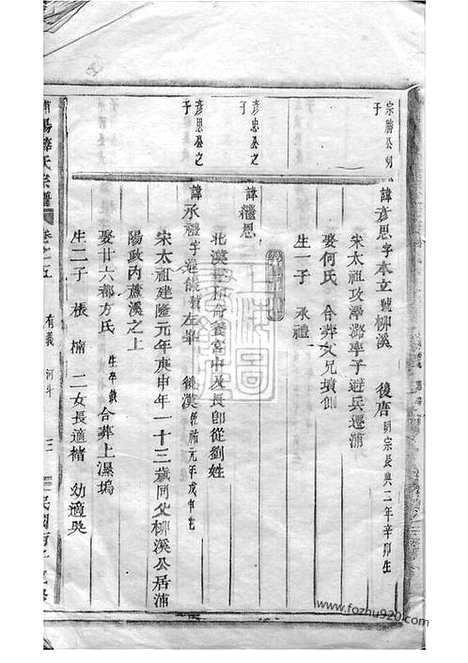 宗勝公幼
子
諱彥思字本立號柳溪 後唐明宗長興二年辛卯生
宋太祖攻澤潞率子避兵遷浦
娶何氏 合葬父兄墳側
生一子 承禮
彥忠公之
子
諱繼恩
北漢主 養宮中及長即從劉姓
彥思公之
子
諱承禮字 後漢乾祐元年戊申生
宋太祖建隆元年庚申年一十三歲同父柳溪公居浦
陽政內蘆溪之上
娶廿六都方氏 生卒缺 合葬上濕塢
生二子 棖 楠 二女長適褚 幼適吳
陽薛氏宗譜 卷之五 有義 河斗 三 民國
www.fozhu920.com